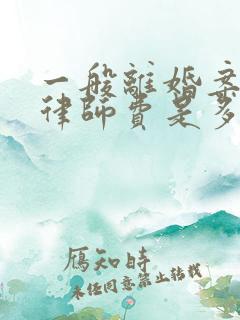 一般離婚案
律師費是多
雁知時
未經同意禁止轉載